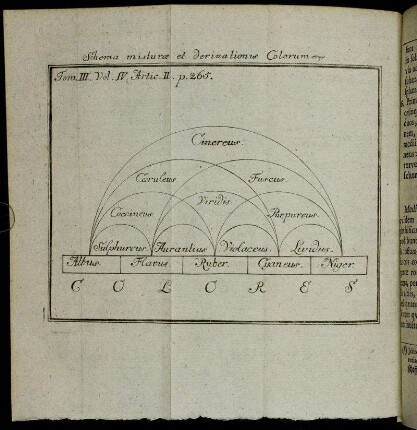 Schema misturæ et derivationis Colorum
Tom. III. Vol. IV. Artic. II. p. 265.
Cinereus.
Cæruleus. Fuscus.
Viridis.
Coccineus Purpureus.
Sulphureus. Aurantius Violaceus. Lividus.
Albus. Flavus. Ruber. Cyaneus. Niger.
C O L O R E S